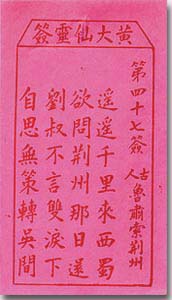 黃大仙靈簽
第四十七簽
古人 魯肅索荆州
遥遥千里來西蜀
欲問荆州那日還
劉叔不言雙淚下
自思無策轉吴間